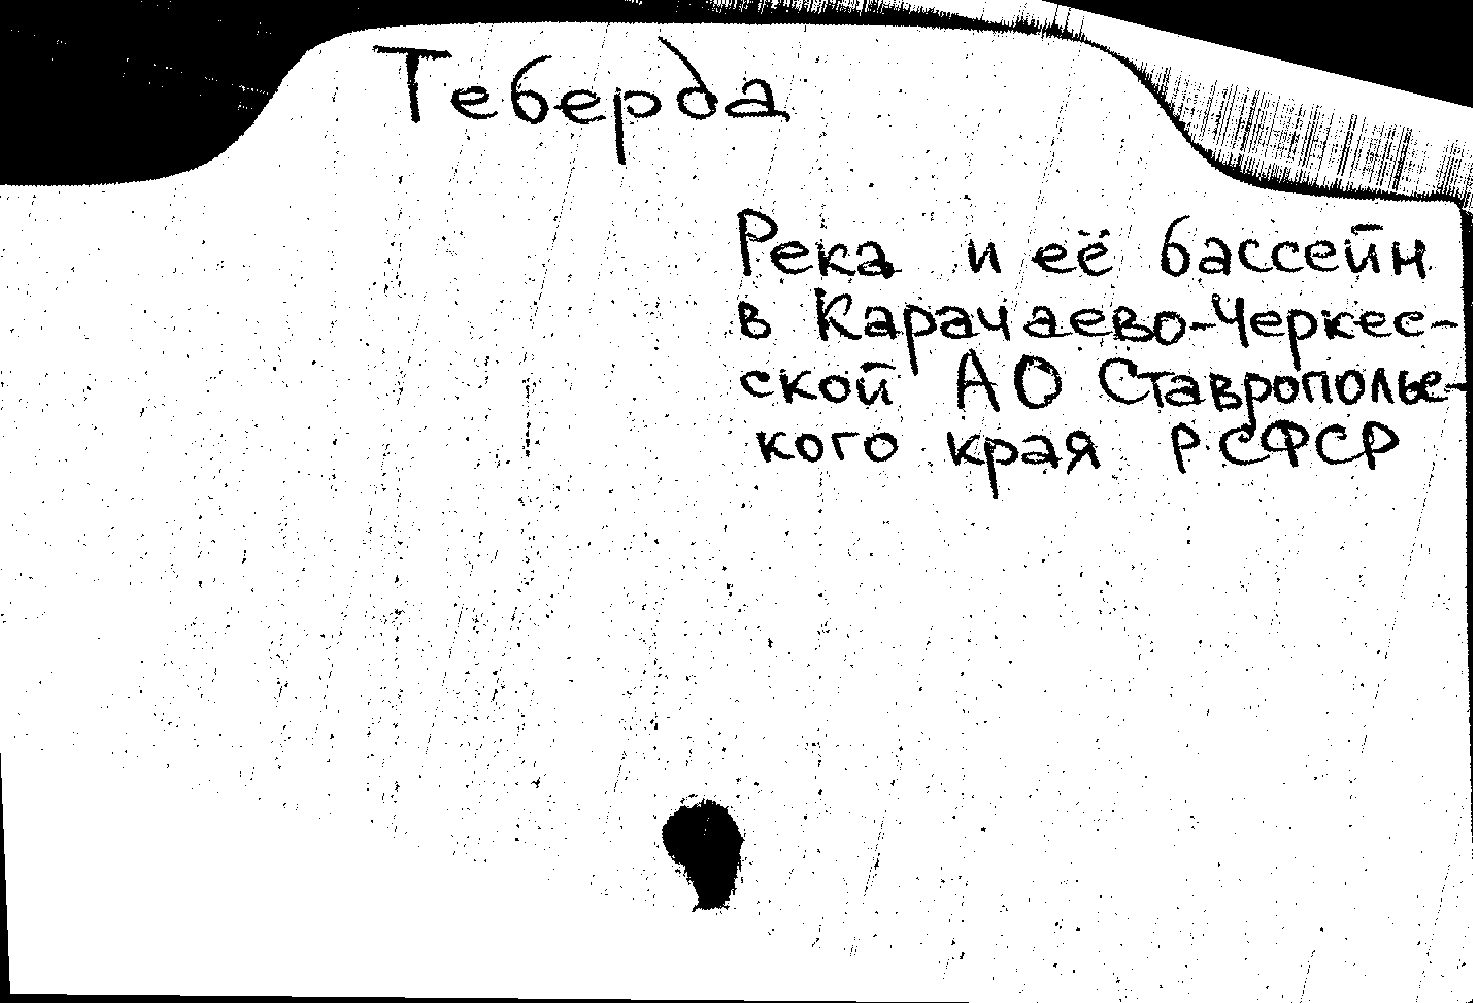 Теберда
Река и её бассейн
в Карачаево-Черкес-
ской АО Ставрополье-
кого края РСФСР